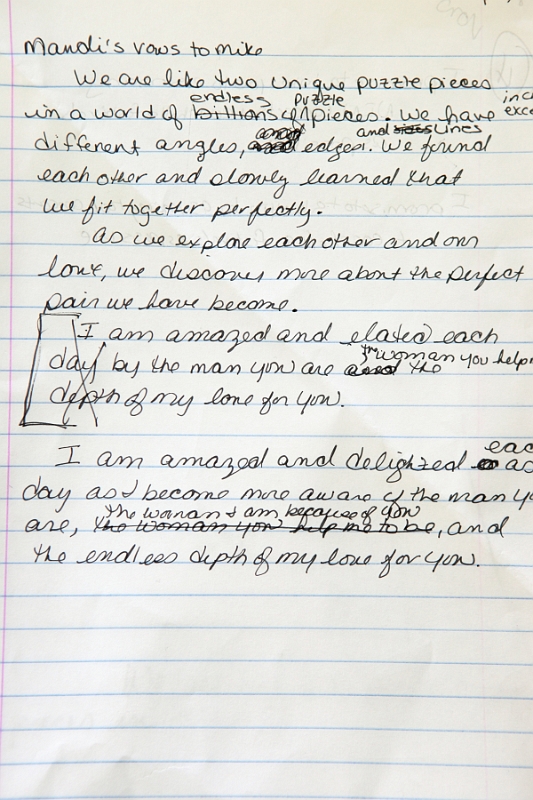 Mandi's vows to mike
We are like two unique puzzle pieces
endless puzzle
in a world of billions of pieces. We have
and lines
different angles, edges. We found
each other and slowly learned that
we fit together perfectly.
as we explore each other and our
love, we discover more about the perfect
pair we have become.
I am amazed and elated each
the woman you help
day by the man you are the
depth of my love for you.
each
I am amazed and delighted as
day as I become more aware of the man you
the woman I am because of you
are, the woman you help me to be, and
the endless depth of my love for you.